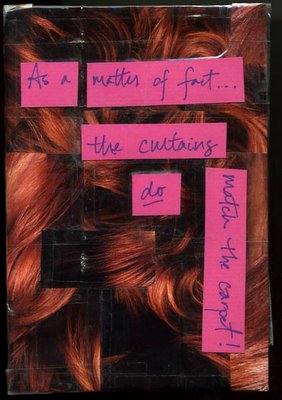 As a matter of fact...
the curtains
do
match the carpet!